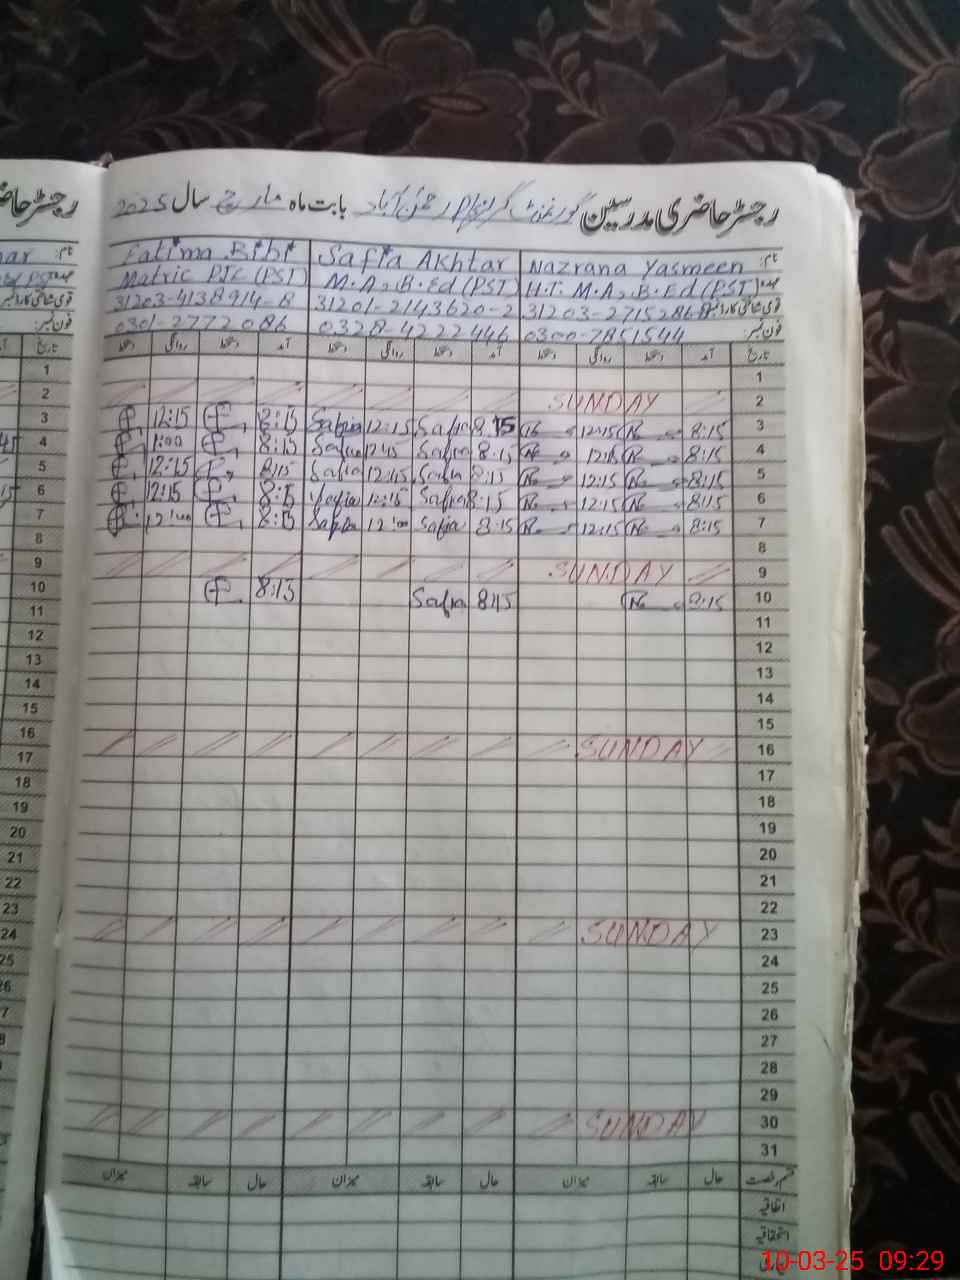 رجسٹر حاضری مدرسین گورنمنٹ گرلز رحمٰن آباد بابت ماہ مارچ سال 2025
Fatima Bibi Safia Akhtar Nazrana Yasmeen نام:
Matric PTC (PST) M.A, B.Ed (PST) H.T. M.A, B.Ed (PST) عہدہ:
31203-4138914-8 31201-2143620-2 31203-2715286-8 قومی شناختی کارڈ نمبر
0301-2772086 0328-4222446 0300-7851544 فون نمبر:
دستخط روانگی دستخط آمد دستخط روانگی دستخط آمد دستخط روانگی دستخط آمد تاریخ
1 1
2 SUNDAY 2
3 12:15 8:15 Safia 12:15 Safia 8:15 12:15 8:15 3
4 1:00 8:15 Safia 12:45 Safia 8:15 8:15 4
5 12:15 8:15 Safia 12:45 Safia 8:15 12:15 8:15 5
6 12:15 8:15 Safia 12:15 Safia 8:15 12:15 8:15 6
7 12:00 8:15 Safia 12:00 Safia 8:15 12:15 8:15 7
8 8
9 SUNDAY 9
10 8:15 Safia 8:15 8:15 10
11 11
12 12
13 13
14 14
15 15
16 SUNDAY 16
17 17
18 18
19 19
20 20
21 21
22 22
23 SUNDAY 23
24 24
25 25
26 26
27
28
29
SUNDAY 30
31
میزان سابقہ حال میزان سابقہ حال میزان سابقہ حال قسم رخصت
اتفاقیہ
استحقاقیہ
10-03-25 09:29